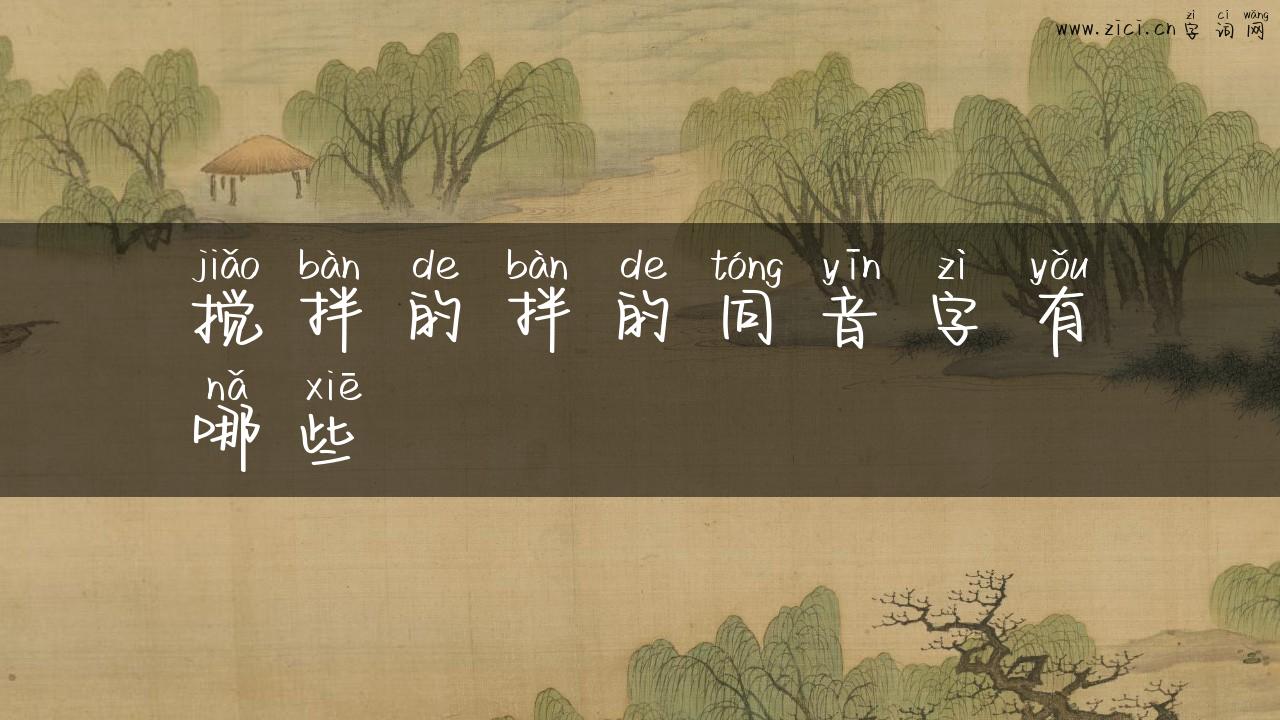 zì cí wǎng
www.zici.cn 字 词 网
jiǎo bàn de bàn de tóng yīn zì yǒu
搅 拌 的 拌 的 同 音 字 有
nǎ xiē
哪 些